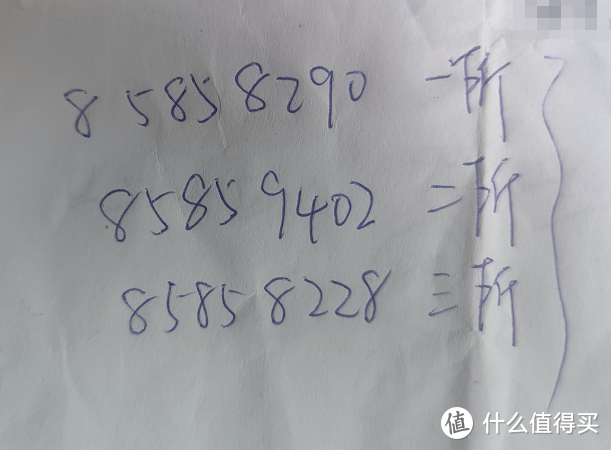 85858290 一所
85859402 二所
85858228 三所
值 什么值得买